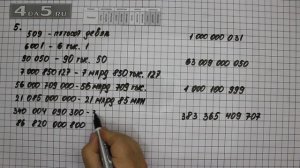 5.
509 - пятьсот девять
6001 - 6 тыс. 1
90 050 - 90 тыс. 50
7 000 850 127 - 7 млрд 850 тыс. 127
56 000 709 000 - 56 млрд 709 тыс.
21 085 000 000 - 21 млрд 85 млн
340 004 090 300 -
86 820 000 800
1 000 000 031
63 009 000 050
1 000 100 999
383 365 409 707